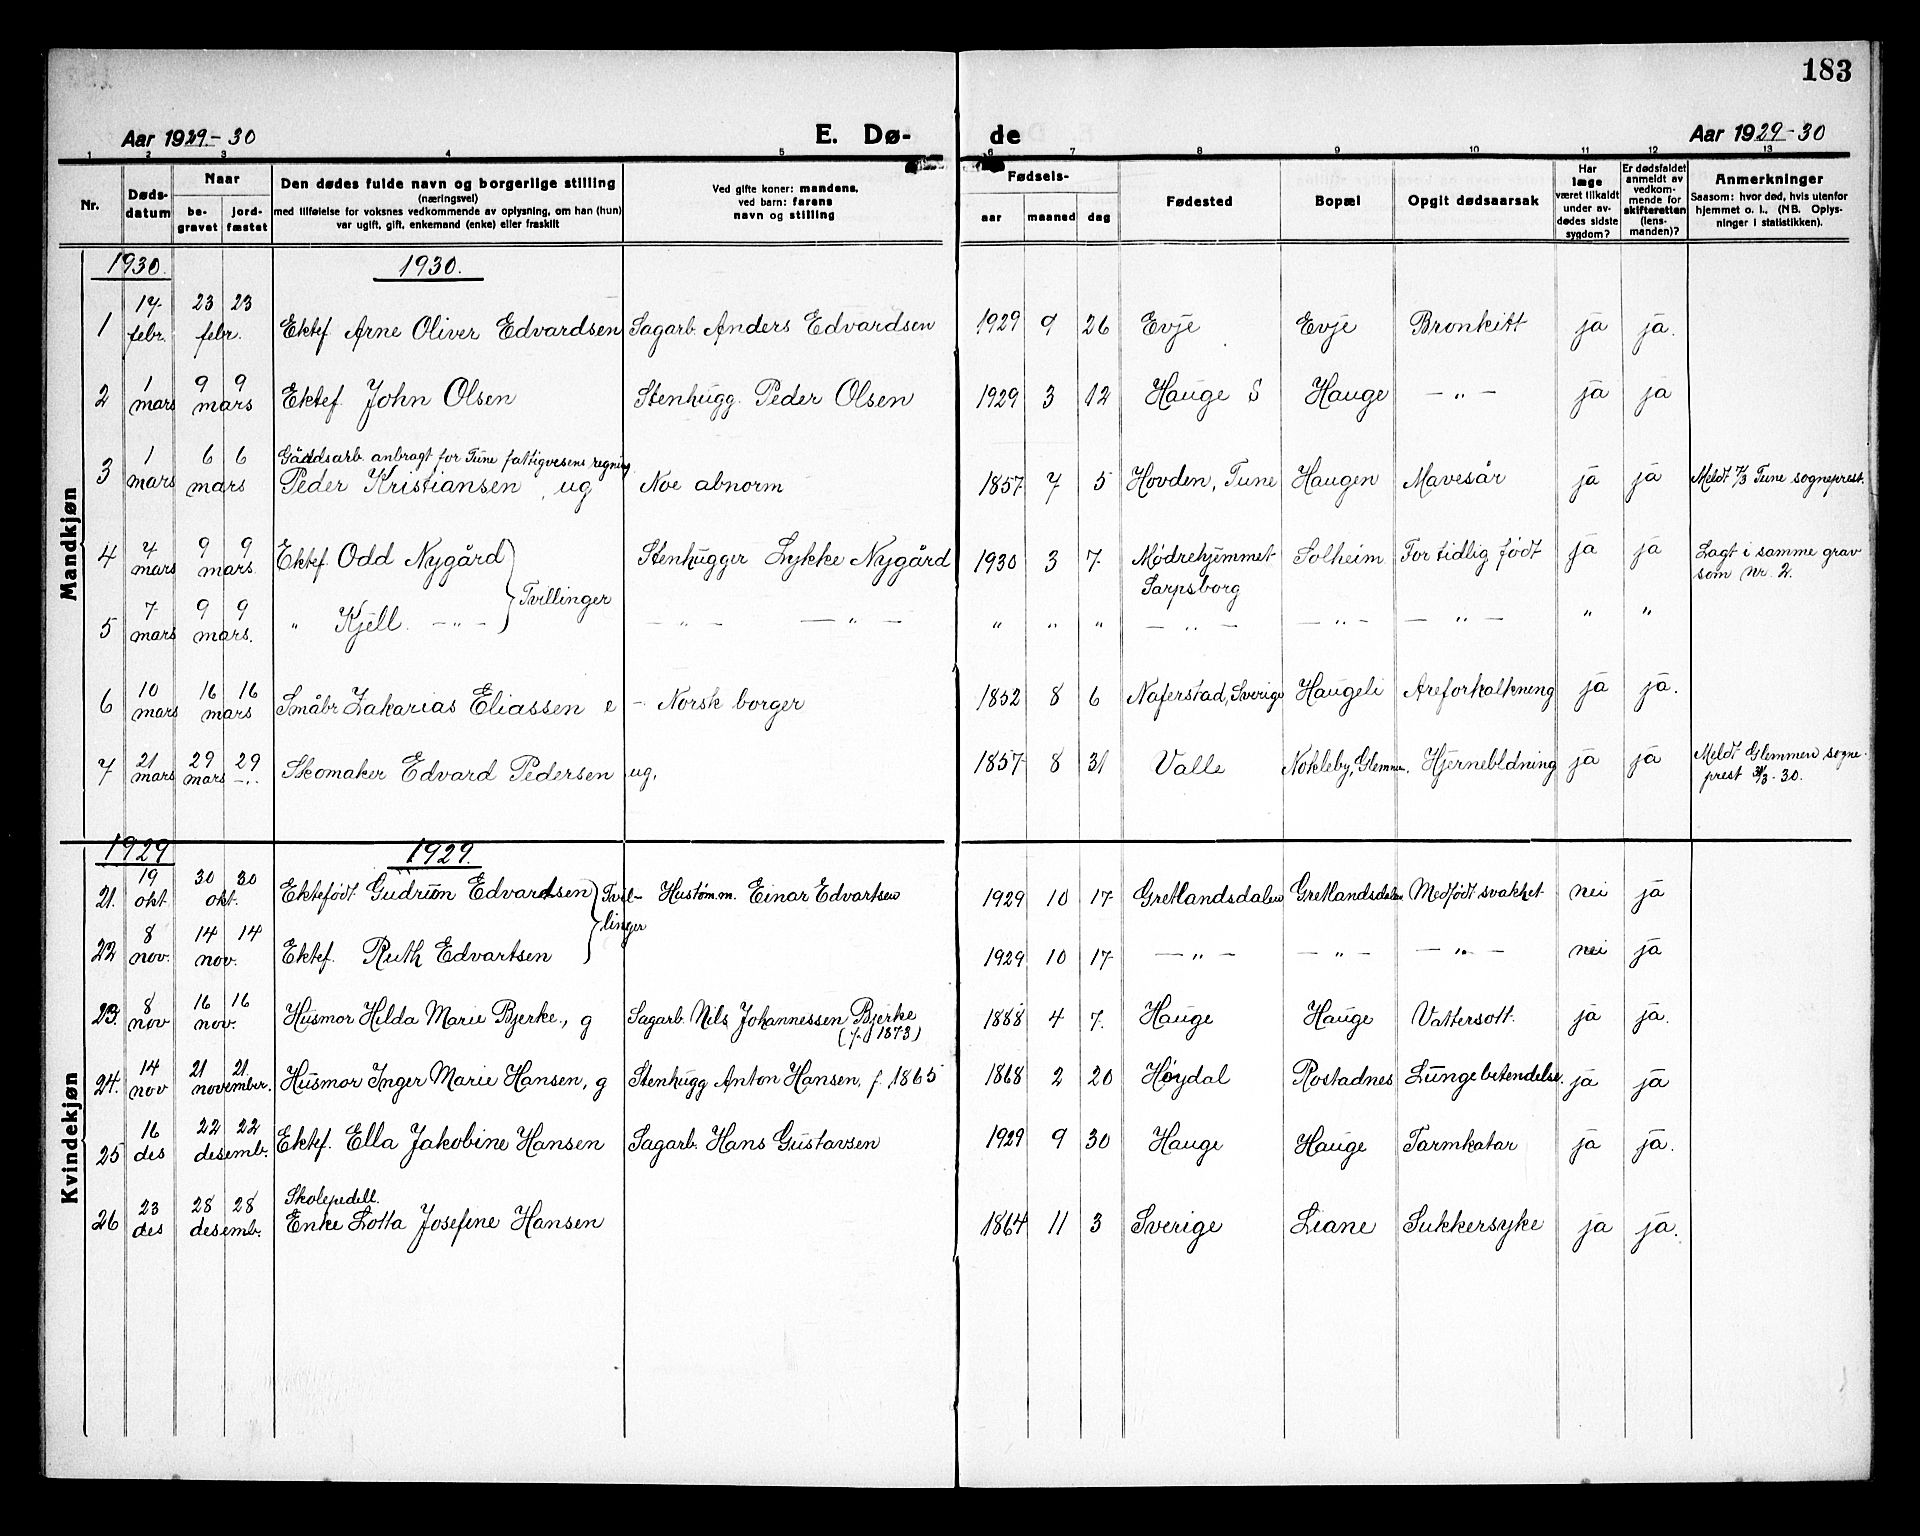 183
Aar 1929-30 E. Dø- de Aar 1929-30
1 2 3 4 5 6 7 8 9 10 11 12 13
Nr. Døds-datum Naar be-gravet jord-fæstet Den dødes fulde navn og borgerlige stilling (næringsvei) med tilføielse for voksnes vedkommende av oplysning, om han (hun) var ugift, gift, enkemand (enke) eller fraskilt Ved gifte koner: mandens, ved barn: farens navn og stilling Fødsels- aar maaned dag Fødested Bopæl Opgit dødsaarsak Har læge været tilkaldt under av-dødes sidste sygdom? Er dødsfaldet anmeldt av vedkom-mende for skifteretten (lens-manden)? Anmerkninger Saasom: hvor død, hvis utenfor hjemmet o. l., (NB. Oplys-ninger i statistikken).
Mandkjøn
1930. 1930.
1 17 febr. 23 23 febr. Ektef. Arne Oliver Edvardsen Sagarb. Anders Edvardsen 1929 9 26 Evje Evje Bronkitt ja ja.
2 1 mars 9 9 mars Ektef. John Olsen Stenhugg. Peder Olsen 1929 3 12 Hauge S Hauge — „ — ja ja
3 1 mars 6 6 mars Gårdsarb. anbragt for Tune fattigvesens regning
Peder Kristiansen, ug Noe abnorm 1857 7 5 Hovden, Tune Haugen Mavesår ja ja Meldt Tune sogneprest.
4 7 mars 9 9 mars. Ektef. Odd Nygård Stenhugger Lykke Nygård 1930 3 7. Mødrehjemmet Sarpsborg Solheim For tidlig født ja ja Lagt i samme grav som nr. 2.
Tvillinger
5 7. mars 9 9 mars. „ Kjell. — „ — — „ — — „ — „ „ „ — „ — — „ — — „ — „ „
6 10 mars 16 16 mars Småbr Zakarias Eliassen e - Norsk borger 1852 8 6 Naferstad, Sverige Haugeli Areforkalkning ja ja.
7 21 mars 29 29 mars —„— Skomaker Edvard Pedersen ug. 1857 8 31 Valle Nokleby, Glemmen. Hjernebldning ja ja Meldt Glemmen sogne-prest 31/3-30.
Kvindekjøn
1929 1929.
21. 19 okt. 30 30 okt. Ektefødt Gudrun Edvardsen Hustøm.m. Einar Edvartsen 1929 10 17 Gretlandsdalen Gretlandsdalen Medfødt svakhet nei ja
Tvil-linger
22 8 nov. 14 14 nov. Ektef. Ruth Edvartsen 1929 10 17 — „ — — „ — — „ — nei ja
23. 8 nov 16 16 nov. Husmor Hilda Marie Bjerke, g Sagarb. Nils Johannessen Bjerke (f. 1873) 1888 4 7. Hauge Hauge Vattersott. ja ja.
24. 14 nov 21 21. november. Husmor Inger Marie Hansen, g Stenhugg Anton Hansen, f. 1865 1868 2 20 Høydal Rostadnes Lungebetendelse. ja ja
25 16 des 22 22 desemb. Ektef. Ella Jakobine Hansen Sagarb. Hans Gustavsen 1929 9 30 Hauge Hauge Tarmkatar ja ja.
26 23 des 28 28 desemb. Skolepedell.
Enke Lotta Josefine Hansen 1864 11 3 Sverige Liane Sukkersyke ja ja.